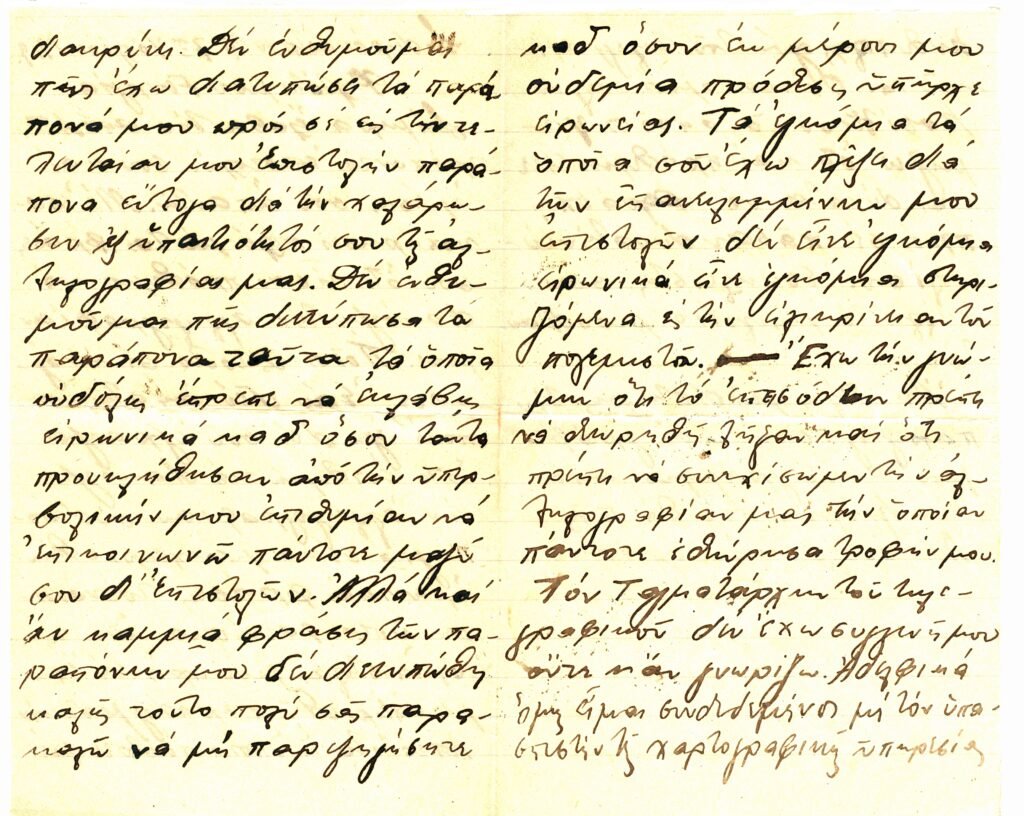 διακρίνει. Δέν ἐνθυμοῦμαι
πῶς ἔχω διατυπώσει τά παρά-
πονά μου πρός σέ εἰς τήν τε-
λευταίαν μου ἐπιστολήν παρά-
πονα εὔλογα διά τήν χαλάρω-
σιν ἐξ ὑπαιτιότητός σου τῆς ἀλ-
ληλογραφίας μας. Δέν ἐνθυ-
μοῦμαι πῶς διετύπωσα τά
παράπονα ταῦτα τά ὁποῖα
οὐδόλως ἔπρεπε νά ἐκλάβῃς
εἰρωνικά καθ ὅσον ταῦτα
προυκλήθησαν ἀπό τήν ὑπερ-
βολικήν μου ἐπιθυμίαν νά
ἐπικοινωνῶ πάντοτε μαζύ
σου δι' ἐπιστολῶν. Ἀλλά καί
ἄν καμμιά φράσις τῶν πα-
ραπόνων μου δέν διετυπώθη
καλῶς τοῦτο πολύ σᾶς παρα-
καλῶ νά μή παρεξηγήσητε
καθ ὅσον ἐκ μέρους μου
οὐδεμία πρόθεσις ὑπῆρχε
εἰρωνείας. Τά ἐγκώμια τά
ὁποῖα σοῦ ἔχω πλέξει διά
τῶν ἐπανειλημμένων μου
ἐπιστολῶν δέν εἶνε ἐγκώμια
εἰρωνικά εἶνε ἐγκώμια στηρι-
ζόμενα εἰς τήν εἰλικρίνειαν τοῦ
πολεμιστοῦ. Ἔχω τήν γνώ-
μην ὅτι τό ἐπεισόδιον πρέπει
νά θεωρηθῇ λῆξαν καί ὅτι
πρέπει νά συνεχίσωμεν τήν ἀλ-
ληλογραφίαν μας τήν ὁποίαν
πάντοτε ἐθεώρησα τροφήν μου.
Τόν Ταγματάρχην τοῦ τηλε-
γραφικοῦ δέν ἔχω συγγενῆ μου
οὔτε κἄν γνωρίζω. Ἀδελφικά
ὅμως εἶμαι συνδεδεμένος μέ τόν ὑπα-
σπιστήν τῆς χαρτογραφικῆς ὑπηρεσίας